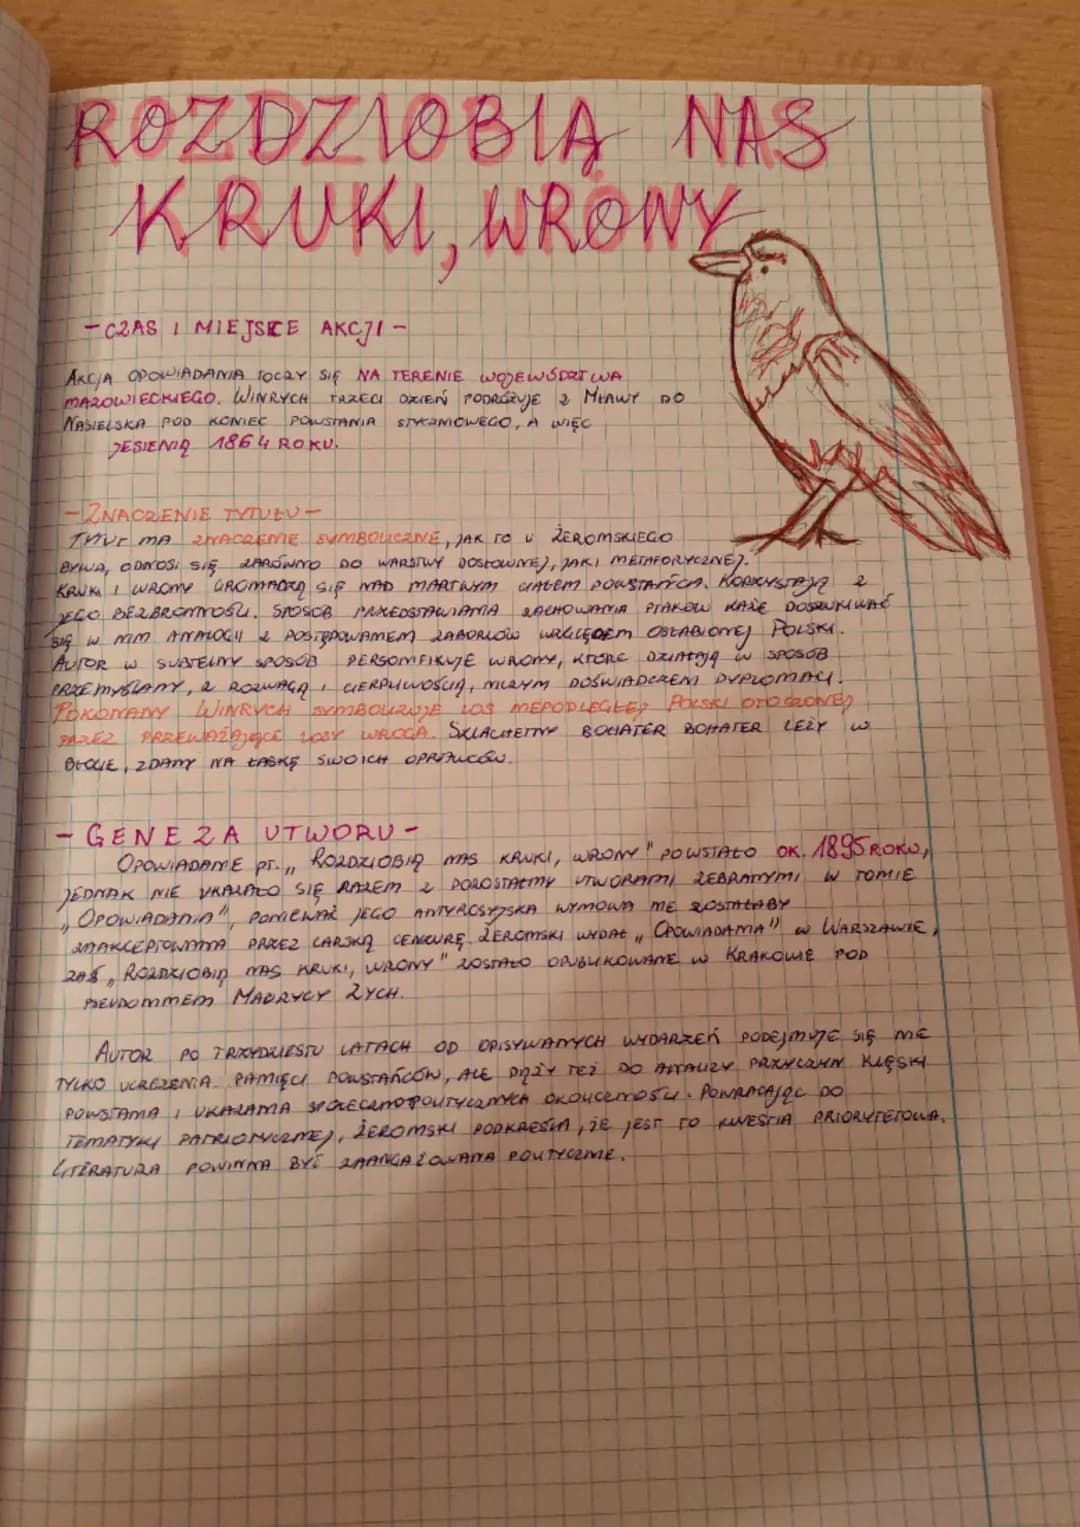 ROZDZIOBIĄ NAS
KRUKI, WRONY
- CZAS I MIEJSCE AKCJI -
AKCJA OPOWIADANIA TOCZY SIĘ NA TERENIE WOJEWÓDZTWA
MAZOWIECKIEGO. WINRYCH TRZECI DZIEŃ PODRÓŻUJE Z MŁAWY DO
NASIELSKA POD KONIEC POWSTANIA STYCZNIOWEGO, A WIĘC
JESIENIĄ 1864 ROKU.
- ZNACZENIE TYTUŁU -
TYTUŁ MA ZNACZENIE SYMBOLICZNE, JAK TO U ŻEROMSKIEGO
BYWA, ODNOSI SIĘ ZARÓWNO DO WARSTWY DOSŁOWNEJ, JAK I METAFORYCZNEJ.
KRUKI I WRONY GROMADZĄ SIĘ NAD MARTWYM CIAŁEM POWSTAŃCA. KORZYSTAJĄ Z
JEGO BEZBRONNOŚCI. SPOSÓB PRZEDSTAWIANIA ZACHOWANIA PTAKÓW KAŻE DOSZUKIWAĆ
SIĘ W NIM ANALOGII Z POSTĘPOWANIEM ZABORCÓW WZGLĘDEM OSŁABIONEJ POLSKI.
AUTOR W SUBTELNY SPOSÓB PERSONIFIKUJE WRONY, KTÓRE DZIAŁAJĄ W SPOSÓB
PRZEMYŚLANY, Z ROZWAGĄ I CIERPLIWOŚCIĄ, NICZYM DOŚWIADCZENI DYPLOMACI.
POKONANY WINRYCH SYMBOLIZUJE LOS NIEPODLEGŁEJ POLSKI OTOCZONEJ
PRZEZ PRZEWAŻAJĄCE LOSY WROGA. SZLACHETNY BOHATER BOHATER LEŻY W
BŁOCIE, ZDANY NA ŁASKĘ SWOICH OPRAWCÓW.
- GENEZA UTWORU -
OPOWIADANIE PT. „ROZDZIOBIĄ NAS KRUKI, WRONY" POWSTAŁO OK. 1895 ROKU,
JEDNAK NIE UKAZAŁO SIĘ RAZEM Z POZOSTAŁYMI UTWORAMI ZEBRANYMI W TOMIE
„OPOWIADANIA", PONIEWAŻ JEGO ANTYROSYJSKA WYMOWA NIE ZOSTAŁABY
ZAAKCEPTOWANA PRZEZ CARSKĄ CENZURĘ. ŻEROMSKI WYDAŁ „OPOWIADANIA" W WARSZAWIE,
ZAŚ „ROZDZIOBIĄ NAS KRUKI, WRONY" ZOSTAŁO OPUBLIKOWANE W KRAKOWIE POD
PSEUDONIMEM MAURYCY ZYCH.
AUTOR PO TRZYDZIESTU LATACH OD OPISYWANYCH WYDARZEŃ PODEJMUJE SIĘ NIE
TYLKO UCZCZENIA PAMIĘCI POWSTAŃCÓW, ALE DĄŻY TEŻ DO ANALIZY PRZYCZYN KLĘSKI
POWSTANIA I UKAZANIA SPOŁECZNOPOLITYCZNYCH OKOLICZNOŚCI. POWRACAJĄC DO
TEMATYKI PATRIOTYCZNEJ, ŻEROMSKI PODKREŚLA, ŻE JEST TO KWESTIA PRIORYTETOWA.
LITERATURA POWINNA BYĆ ZAANGAŻOWANA POLITYCZNIE.